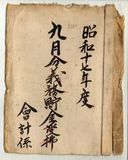 昭和十七年度
九月分義務貯金受拂
會計係